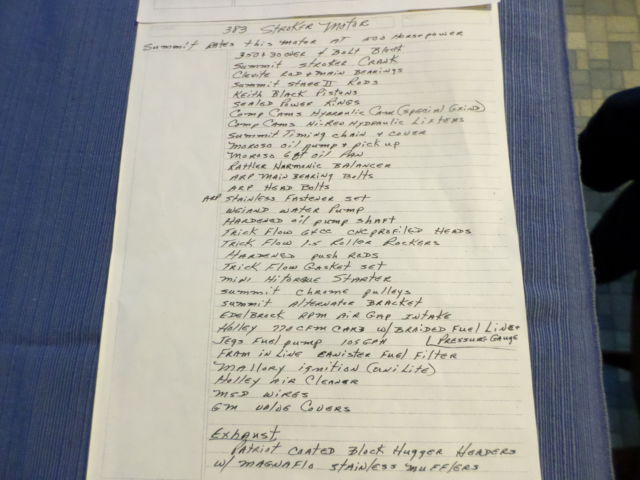 383 Stroker Motor
Summit Rates this motor at 500 Horsepower
350+30 over 4 Bolt Block
Summit Stroker Crank
Clevite Rod & Main Bearings
Summit Stage II Rods
Keith Black Pistons
Sealed Power Rings
Comp Cams Hydraulic Cam (Special Grind)
Comp Cams Hi-Rev Hydraulic Lifters
Summit Timing Chain & Cover
Moroso oil pump & pick up
Moroso 6pt oil Pan
Rattler Harmonic Balancer
ARP Main Bearing Bolts
ARP Head Bolts
ARP Stainless Fastener set
Weiand Water Pump
Hardened oil pump shaft
Trick Flow 64cc CNC profiled Heads
Trick Flow 1.5 Roller Rockers
Hardened push Rods
Trick Flow Gasket set
mini Hitorque Starter
summit chrome pulleys
summit Alternator Bracket
Edelbrock RPM Air Gap Intake
Holley 770 CFM Carb w/ Braided Fuel Line &
Pressure Gauge
Jegs Fuel pump 105 GPH
Fram in Line Canister Fuel Filter
Mallory ignition (uni Lite)
Holley Air Cleaner
MSD Wires
GM Valve Covers
Exhaust
Patriot Coated Block Hugger Headers
w/ Magnaflo Stainless Mufflers